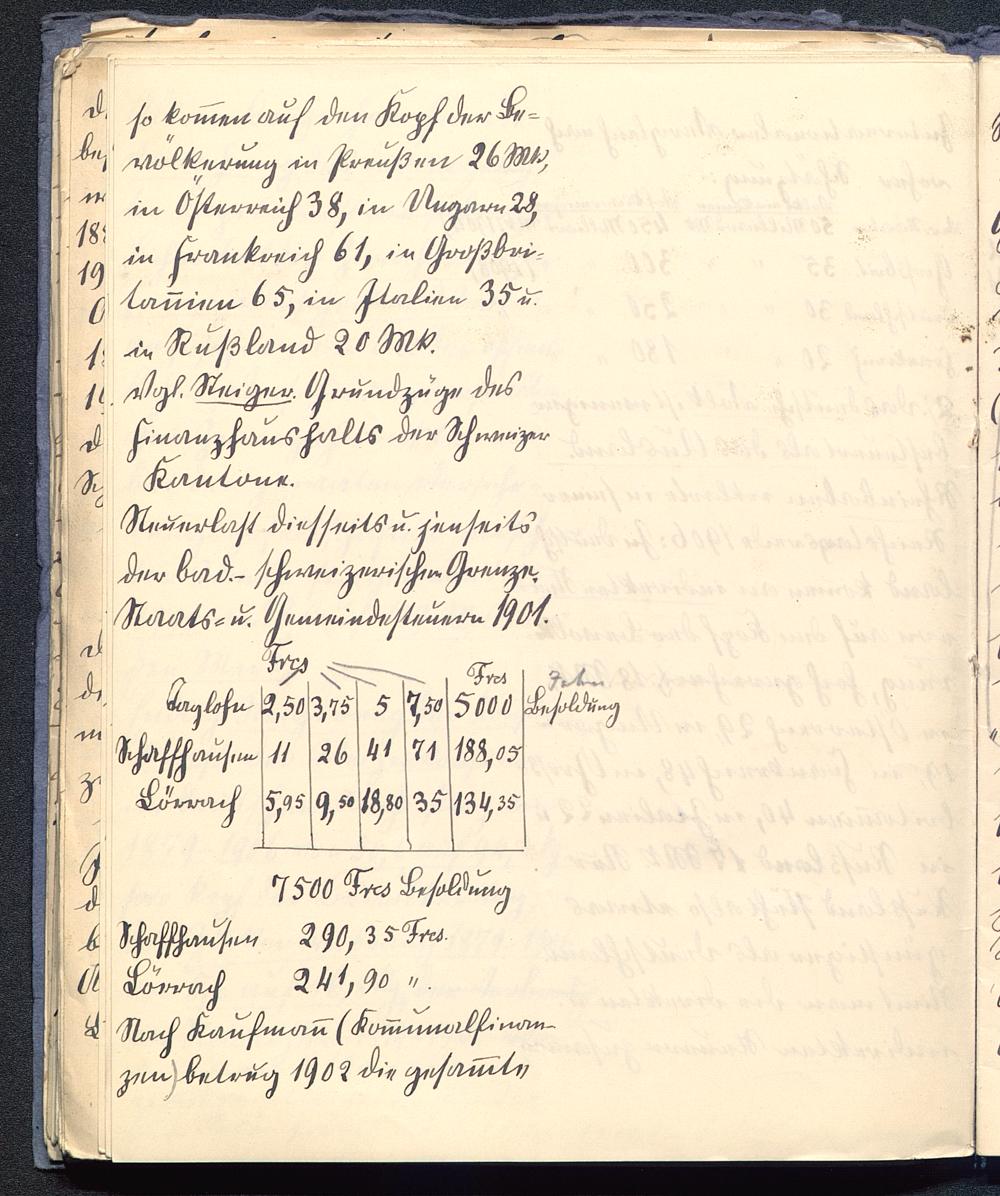 so kom̄en auf den Kopf der Be=
völkerung in Preußen 26 Mk,
in Österreich 38, in Ungarn 28,
in Frankreich 61, in Großbri-
tan̄ien 65, in Italien 35 u.
in Rußland 20 Mk.
Vgl. Steiger. Grundzüge des
Finanzhaushalts der Schweizer
Kantone.
Steuerlast diesseits u. jenseits
der bad.- schweizerischen Grenze.
Staats= u. Gemeindesteuern 1901.
Frcs Frcs
Taglohn 2,50 3,75 5 7,50 5000 Besoldung
Schaffhausen 11 26 41 71 188,05
Lörrach 5,95 9,50 18,80 35 134,35
7500 Frcs Besoldung
Schaffhausen 290,35 Frcs.
Lörrach 241,90 ".
Nach Kaufman̄ (Kom̄unalfinan-
zen) betrug 1902 die gesam̄te